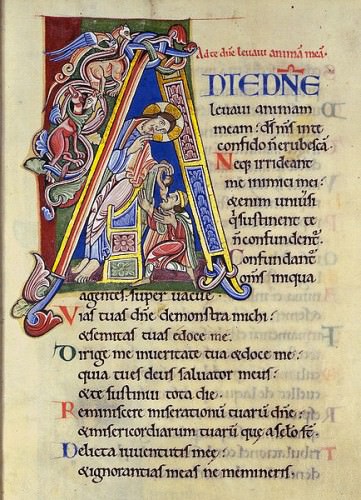 Ad te dñe levavi animã meã.
AD TE DÑE
levavi animam
meam: d̃s m̃s in te
confido ñ erubescã.
Neq; irrideant
me inimici mei:
&enim uniṽsi
q̃ sustinent te
ñ confundent̃.
Confundant̃
om̃s iniqua
agentes: super vacue.
Vias tuas dñe demonstra michi:
& semitas tuas edoce me.
Dirige me in veritate tua & doce me:
quia tu es deus salvator meus:
& te sustinui tota die.
Reminiscere miserationũ tuarũ dñe:
& misericordiarum tuarũ que a sclo st̃.
Delicta iuventutis meę:
& ignorantias meas ne memineris.